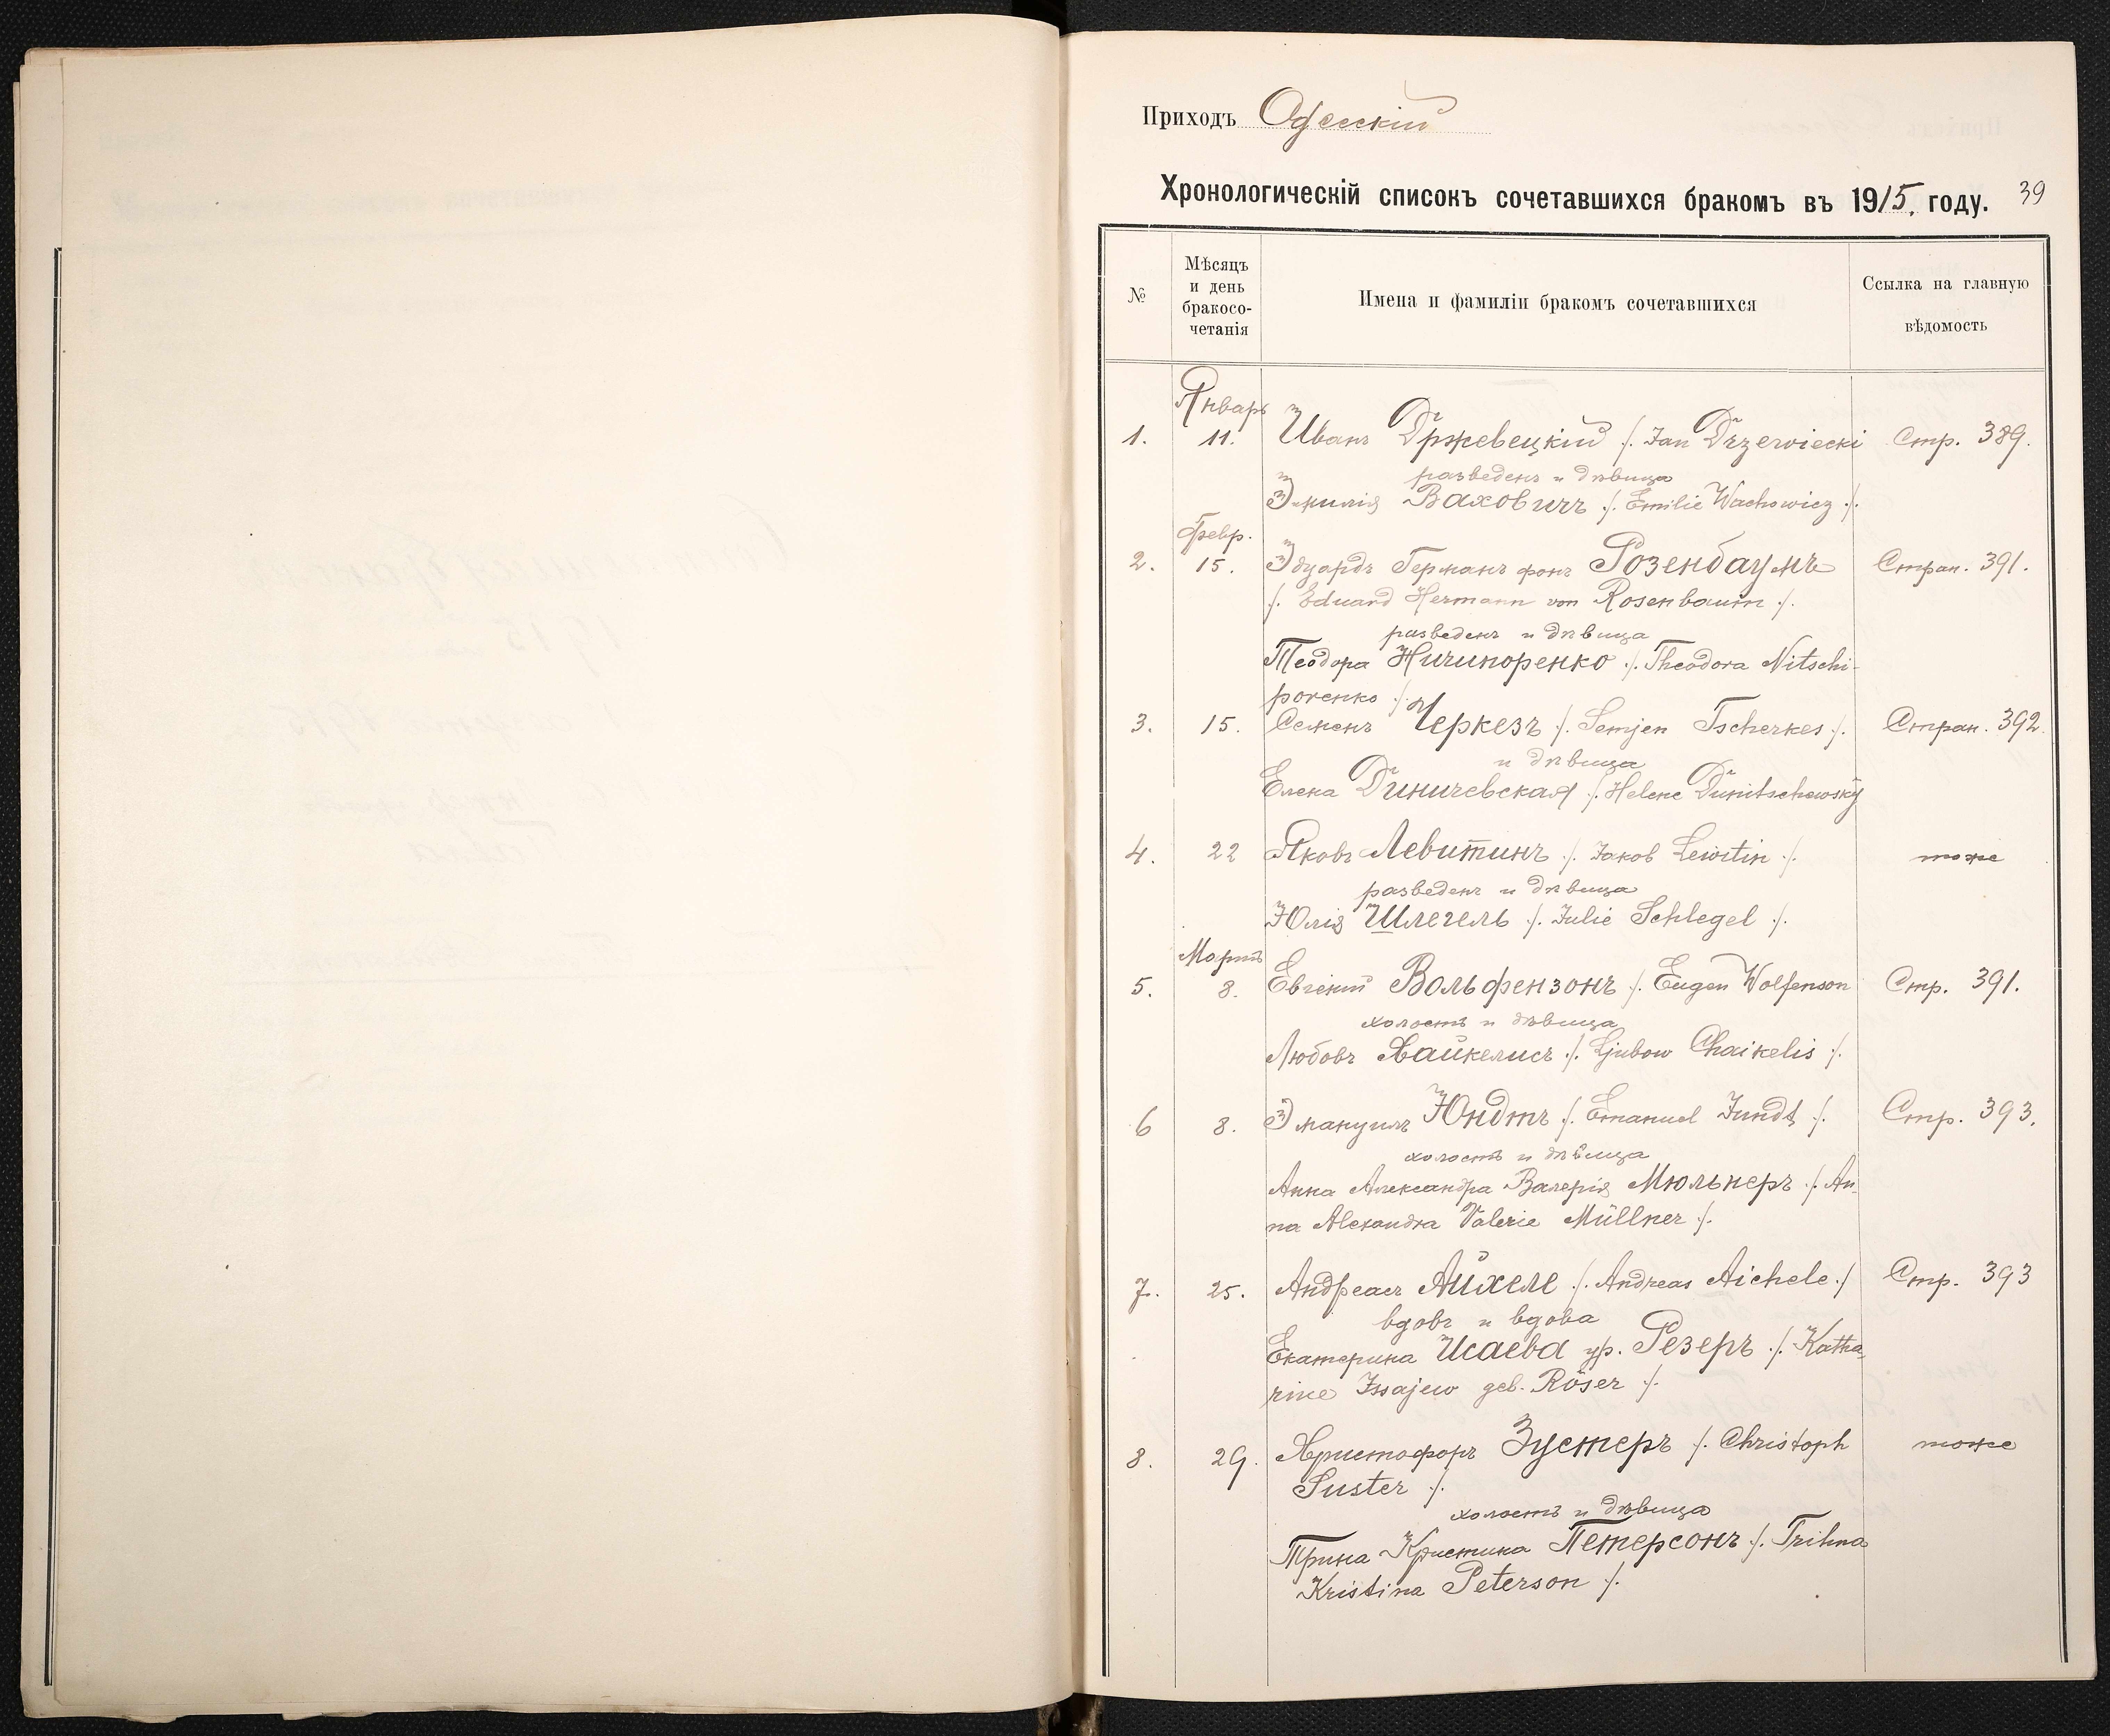 Приходъ Одесскій
Хронологическій списокъ сочетавшихся бракомъ въ 1915. году. 39
№
Мѣсяцъ
и день
бракосо-
четанія
Имена и фамиліи бракомъ сочетавшихся
Ссылка на главную
вѣдомость
Январь
1. 11. Иванъ Држевецкій /. Jan Drzewiecki Стр. 389.
разведенъ и дѣвица
Эмилія Ваховичъ /. Emilie Wachowicz ./.
Февр.
2. 15. Эдуардъ Германъ фонъ Розенбаумъ Стран. 391.
/. Eduard Hermann von Rosenbaum ./.
разведенъ и дѣвица
Теодора Ничипоренко ./. Theodora Nitschi-
porenko ./.
3. 15. Семенъ Черкезъ ./. Semjen Tscherkes ./. Стран. 392.
и дѣвица
Елена Диничевская /. Helene Dinitschewsky
4. 22 Яковъ Левитинъ ./. Jakob Lewitin ./. тоже
разведенъ и дѣвица
Юлія Шлегель ./. Julie Schlegel ./.
Мартъ
5. 8. Евгеній Вольфензонъ ./. Eugen Wolfenson Стр. 391.
холостъ и дѣвица
Любовь Хайкелисъ ./. Ljubow Chaikelis ./.
6 8. Эмануилъ Юндтъ ./. Emanuel Jundt ./. Стр. 393.
холостъ и дѣвица
Анна Александра Валерія Мюльнеръ ./. An-
na Alexandra Valerie Müllner ./.
7. 25. Андреасъ Айхеле ./. Andreas Aichele ./. Стр. 393
вдовъ и вдова
Екатерина Исаева ур. Резеръ ./. Katha-
rine Issajew geb. Röser ./.
8. 29. Христофоръ Зустеръ ./. Christoph тоже
Suster ./.
холостъ и дѣвица
Трина Кристина Петерсонъ ./. Trihna
Kristina Peterson ./.